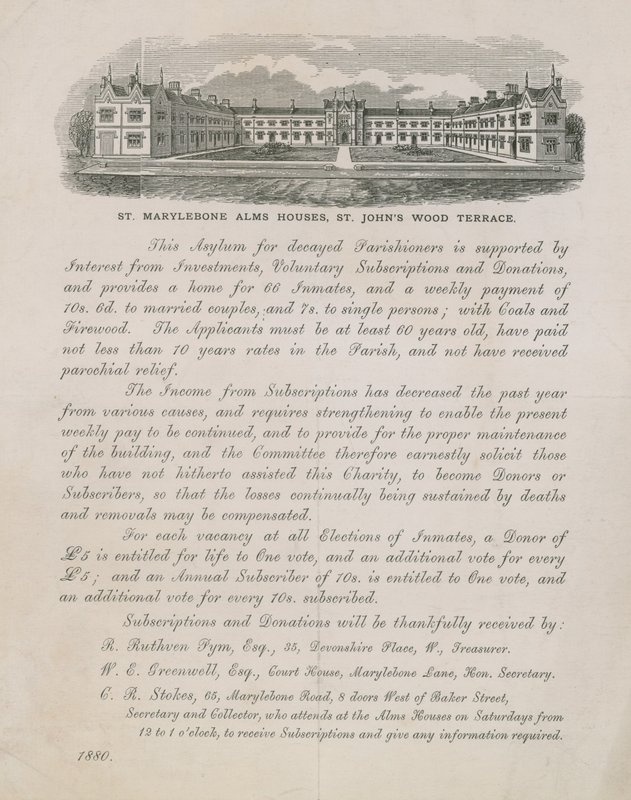 ST. MARYLEBONE ALMS HOUSES, ST. JOHN'S WOOD TERRACE.
This Asylum for decayed Parishioners is supported by
Interest from Investments, Voluntary Subscriptions and Donations,
and provides a home for 66 Inmates, and a weekly payment of
10s. 6d. to married couples, and 7s. to single persons; with Coals and
Firewood. The Applicants must be at least 60 years old, have paid
not less than 10 years rates in the Parish, and not have received
parochial relief.
The Income from Subscriptions has decreased the past year
from various causes, and requires strengthening to enable the present
weekly pay to be continued, and to provide for the proper maintenance
of the building, and the Committee therefore earnestly solicit those
who have not hitherto assisted this Charity, to become Donors or
Subscribers, so that the losses continually being sustained by deaths
and removals may be compensated.
For each vacancy at all Elections of Inmates, a Donor of
£5 is entitled for life to One vote, and an additional vote for every
£5; and an Annual Subscriber of 10s. is entitled to One vote, and
an additional vote for every 10s. subscribed.
Subscriptions and Donations will be thankfully received by:
R. Ruthven Pym, Esq., 35, Devonshire Place, W., Treasurer.
W. E. Greenwell, Esq., Court House, Marylebone Lane, Hon. Secretary.
C. R. Stokes, 65, Marylebone Road, 8 doors West of Baker Street,
Secretary and Collector, who attends at the Alms Houses on Saturdays from
12 to 1 o'clock, to receive Subscriptions and give any information required.
1880.